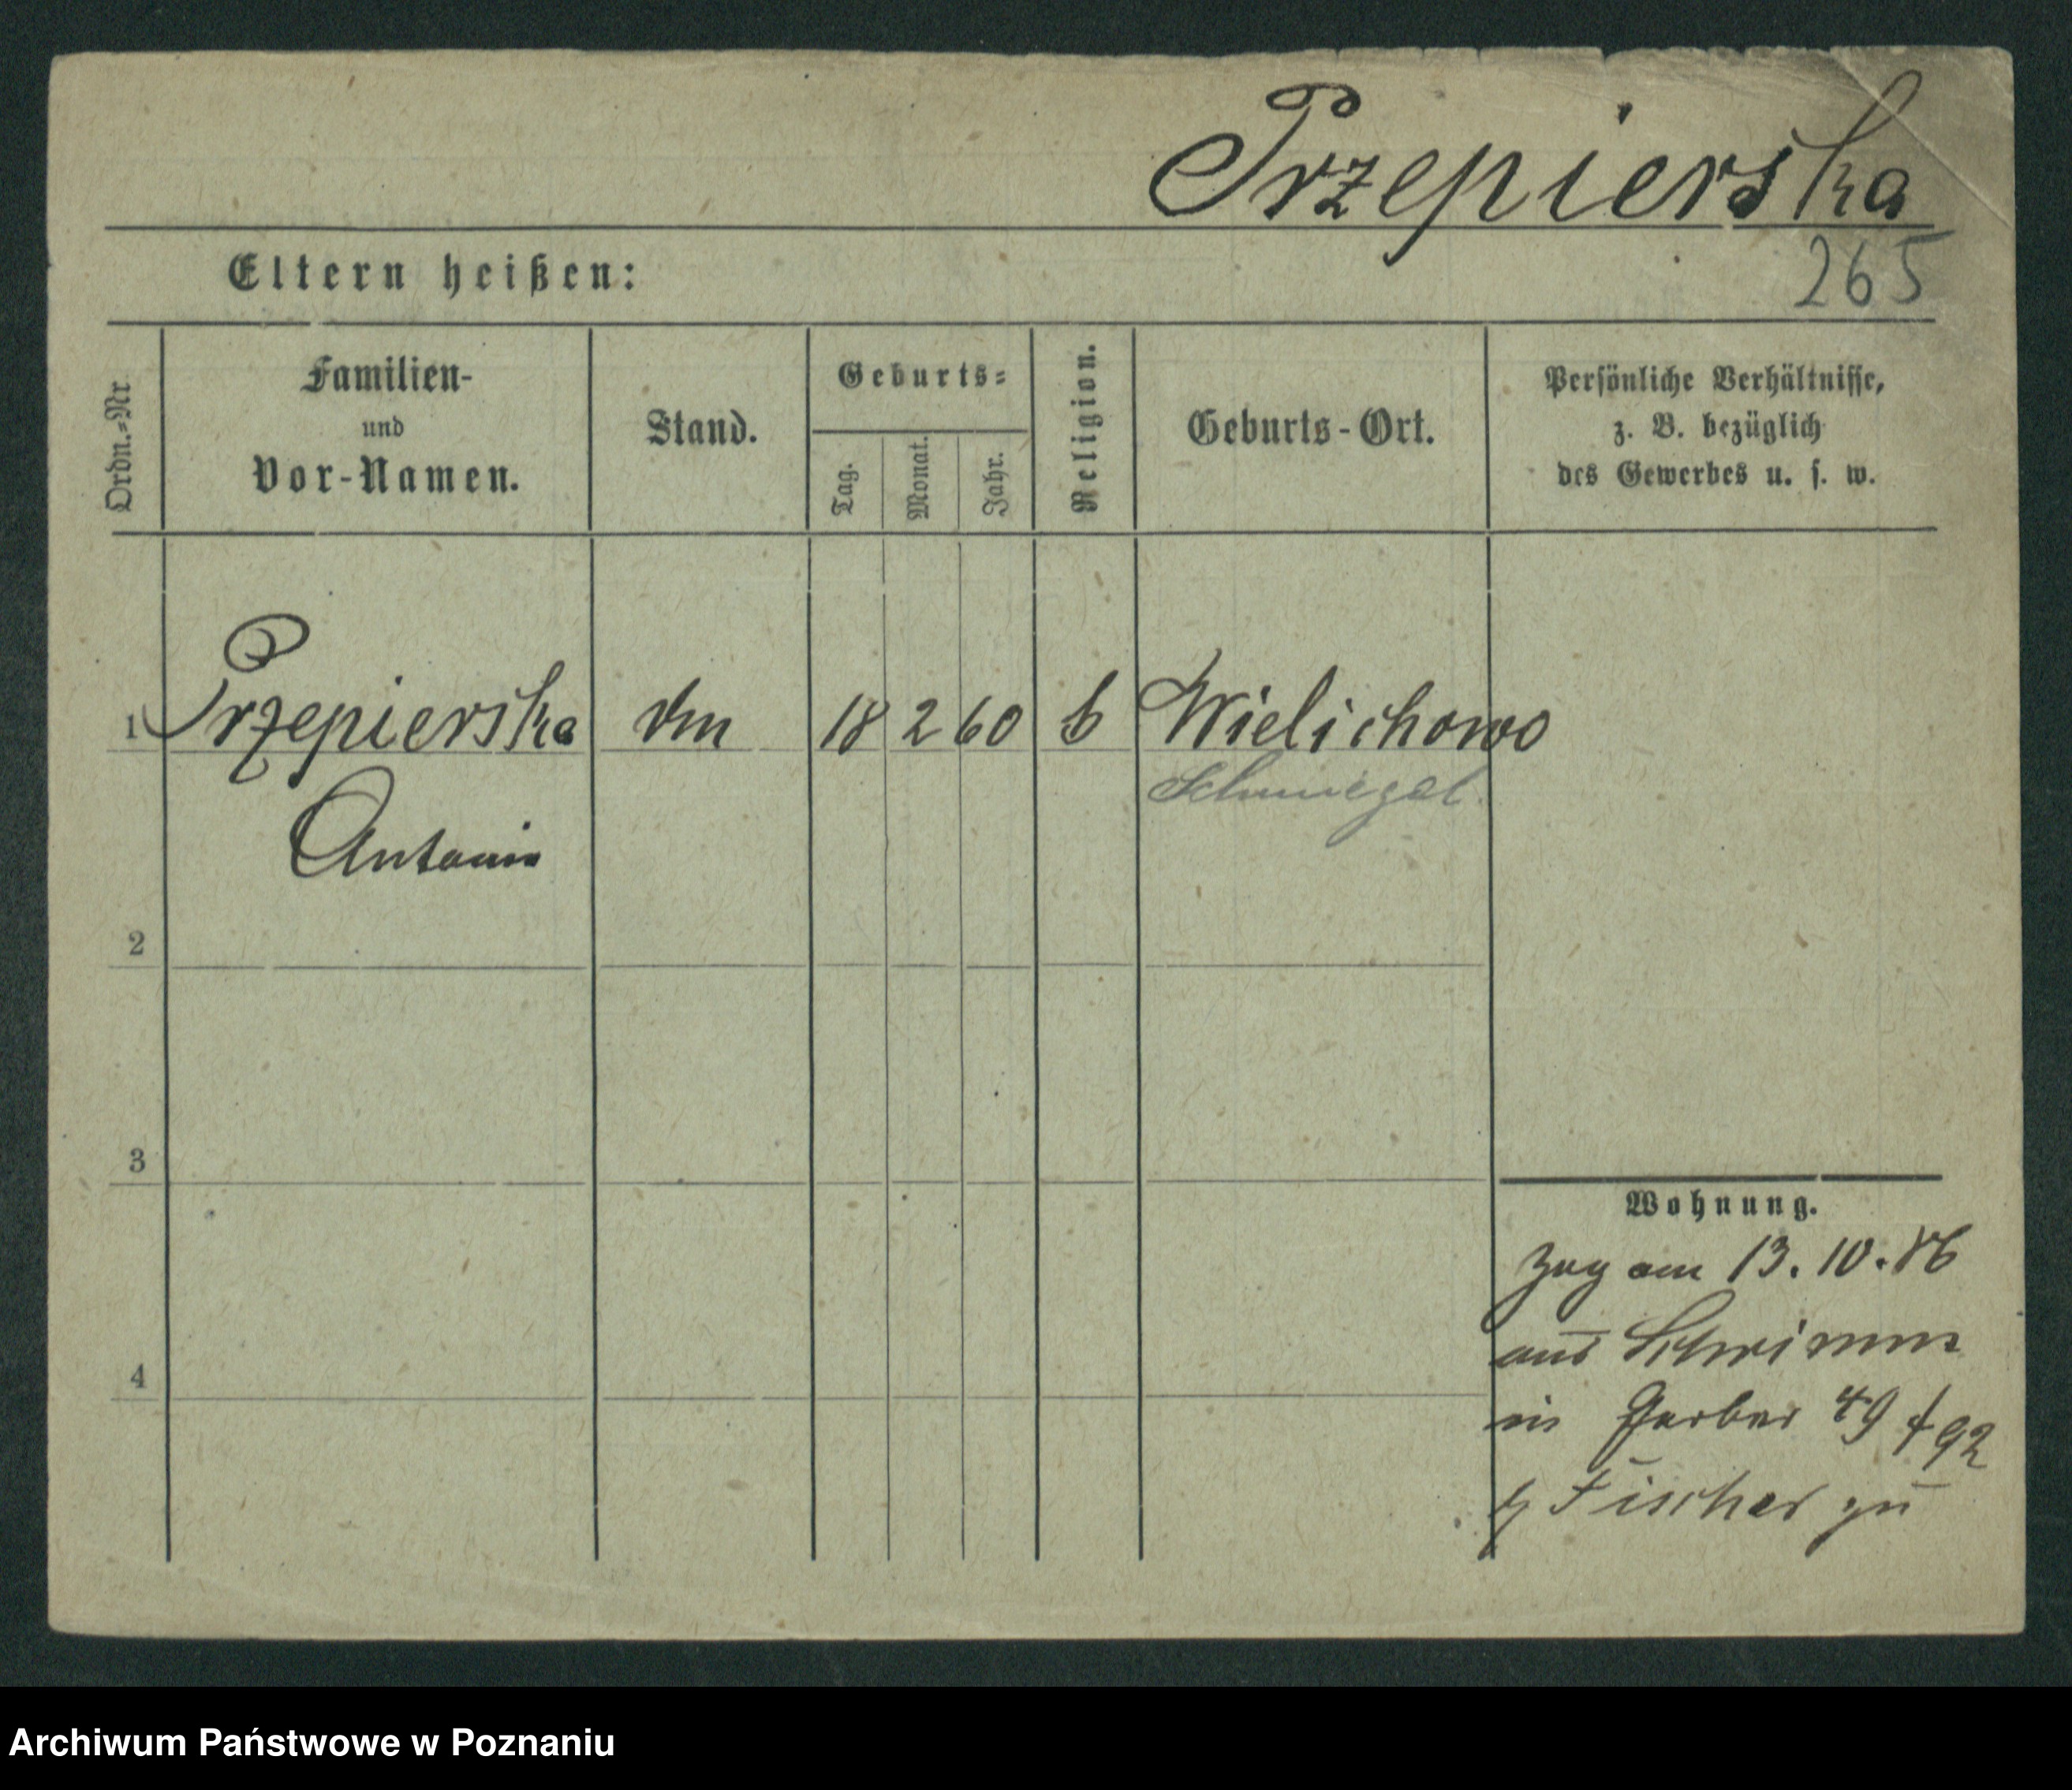 Przepierska
265
Eltern heißen:
Ordn.-Nr
Familien-
und
Vor-Namen.
Stand.
Geburts-
Tag.
Monat.
Jahr.
Religion.
Geburts-Ort.
Persönliche Verhältnisse,
z. B. bezüglich
des Gewerbes u. s. w.
1 Przepierska 18 2 60 Wielichowo
Schmiegel
Antonia
2
3
4
Wohnung.
Zug am 13.10.86
aus Schrimm
in Gerber 49 492
Fischer zu
Archiwum Państwowe w Poznaniu